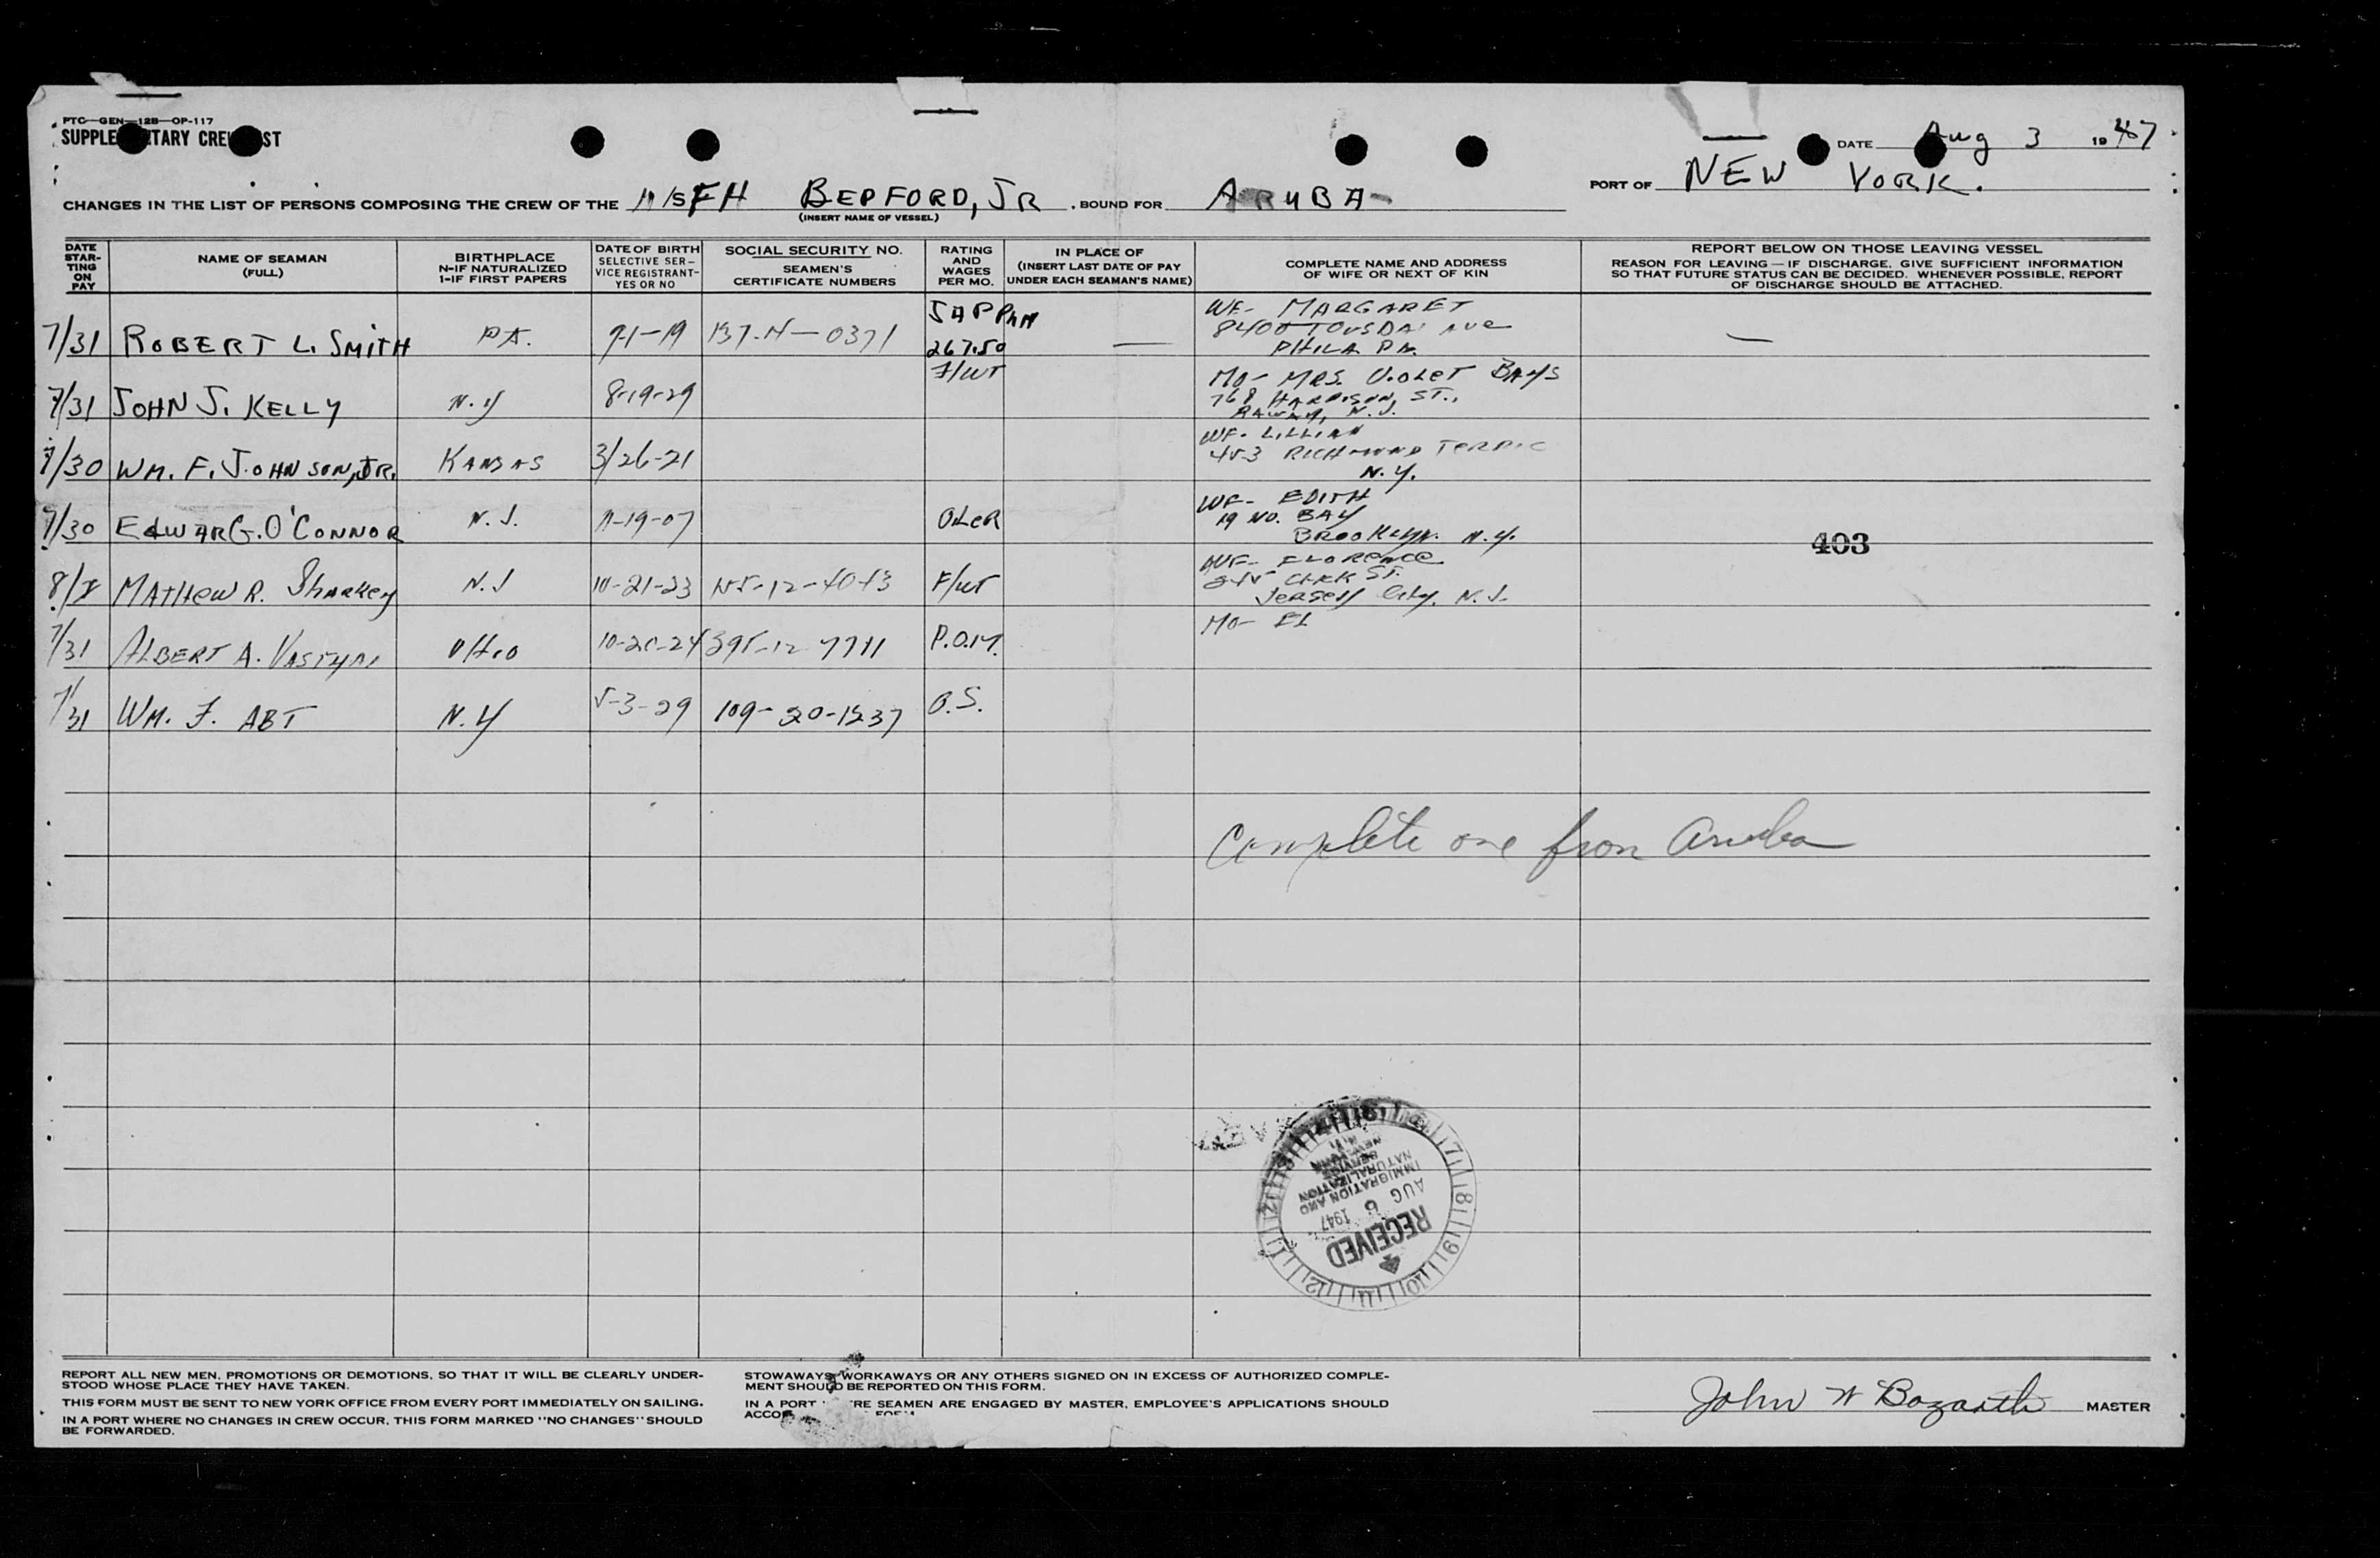 PTC—GEN—12B—OP-117
SUPPLE TARY CRE ST
DATE Aug 3 1947
PORT OF NEW YORK.
CHANGES IN THE LIST OF PERSONS COMPOSING THE CREW OF THE M/S FH BEDFORD, JR , BOUND FOR ARUBA
(INSERT NAME OF VESSEL)
DATE STAR-TING ON PAY
NAME OF SEAMAN (FULL)
BIRTHPLACE N-IF NATURALIZED 1-IF FIRST PAPERS
DATE OF BIRTH SELECTIVE SER-VICE REGISTRANT-YES OR NO
SOCIAL SECURITY NO. SEAMEN'S CERTIFICATE NUMBERS
RATING AND WAGES PER MO.
IN PLACE OF (INSERT LAST DATE OF PAY UNDER EACH SEAMAN'S NAME)
COMPLETE NAME AND ADDRESS OF WIFE OR NEXT OF KIN
REPORT BELOW ON THOSE LEAVING VESSEL
REASON FOR LEAVING — IF DISCHARGE, GIVE SUFFICIENT INFORMATION
SO THAT FUTURE STATUS CAN BE DECIDED. WHENEVER POSSIBLE, REPORT
OF DISCHARGE SHOULD BE ATTACHED.
7/31 ROBERT L. SMITH PA. 9-1-19 0371 267.50 — WF- MARGARET 8400 AVE PHILA PA. —
7/31 JOHN J. KELLY N.Y 8-19-29 F/WT MO- MRS. VIOLET BAYS 768 ST., N.J.
7/30 WM. F. JOHNSON, JR. KANSAS 3/26-21 WF. LILLIAN 453 RICHMOND N.Y.
7/30 EDWAR G. O'CONNOR N.J. 11-19-07 OILER WF- EDITH 19 NO. BAY BROOKLYN. N.Y.
403
MATHEW R. Sharkey N.J 10-21-23 F/WT WF- FLORENCE ST. JERSEY City. N.J.
7/31 ALBERT A. OHIO 10-20-24 395-12 7711 P.O.M. MO- EL
7/31 WM. F. ABT N.Y 5-3-29 109-20-1237 O.S.
Complete one from Aruba
IMMIGRATION AND
NATURALIZATION
SERVICE
NEW YORK
AUG 6 1947
RECEIVED
REPORT ALL NEW MEN, PROMOTIONS OR DEMOTIONS, SO THAT IT WILL BE CLEARLY UNDER-
STOOD WHOSE PLACE THEY HAVE TAKEN.
THIS FORM MUST BE SENT TO NEW YORK OFFICE FROM EVERY PORT IMMEDIATELY ON SAILING.
IN A PORT WHERE NO CHANGES IN CREW OCCUR, THIS FORM MARKED "NO CHANGES" SHOULD
BE FORWARDED.
STOWAWAYS, WORKAWAYS OR ANY OTHERS SIGNED ON IN EXCESS OF AUTHORIZED COMPLE-
MENT SHOULD BE REPORTED ON THIS FORM.
IN A PORT RE SEAMEN ARE ENGAGED BY MASTER, EMPLOYEE'S APPLICATIONS SHOULD
ACCO
John W Bozarth MASTER